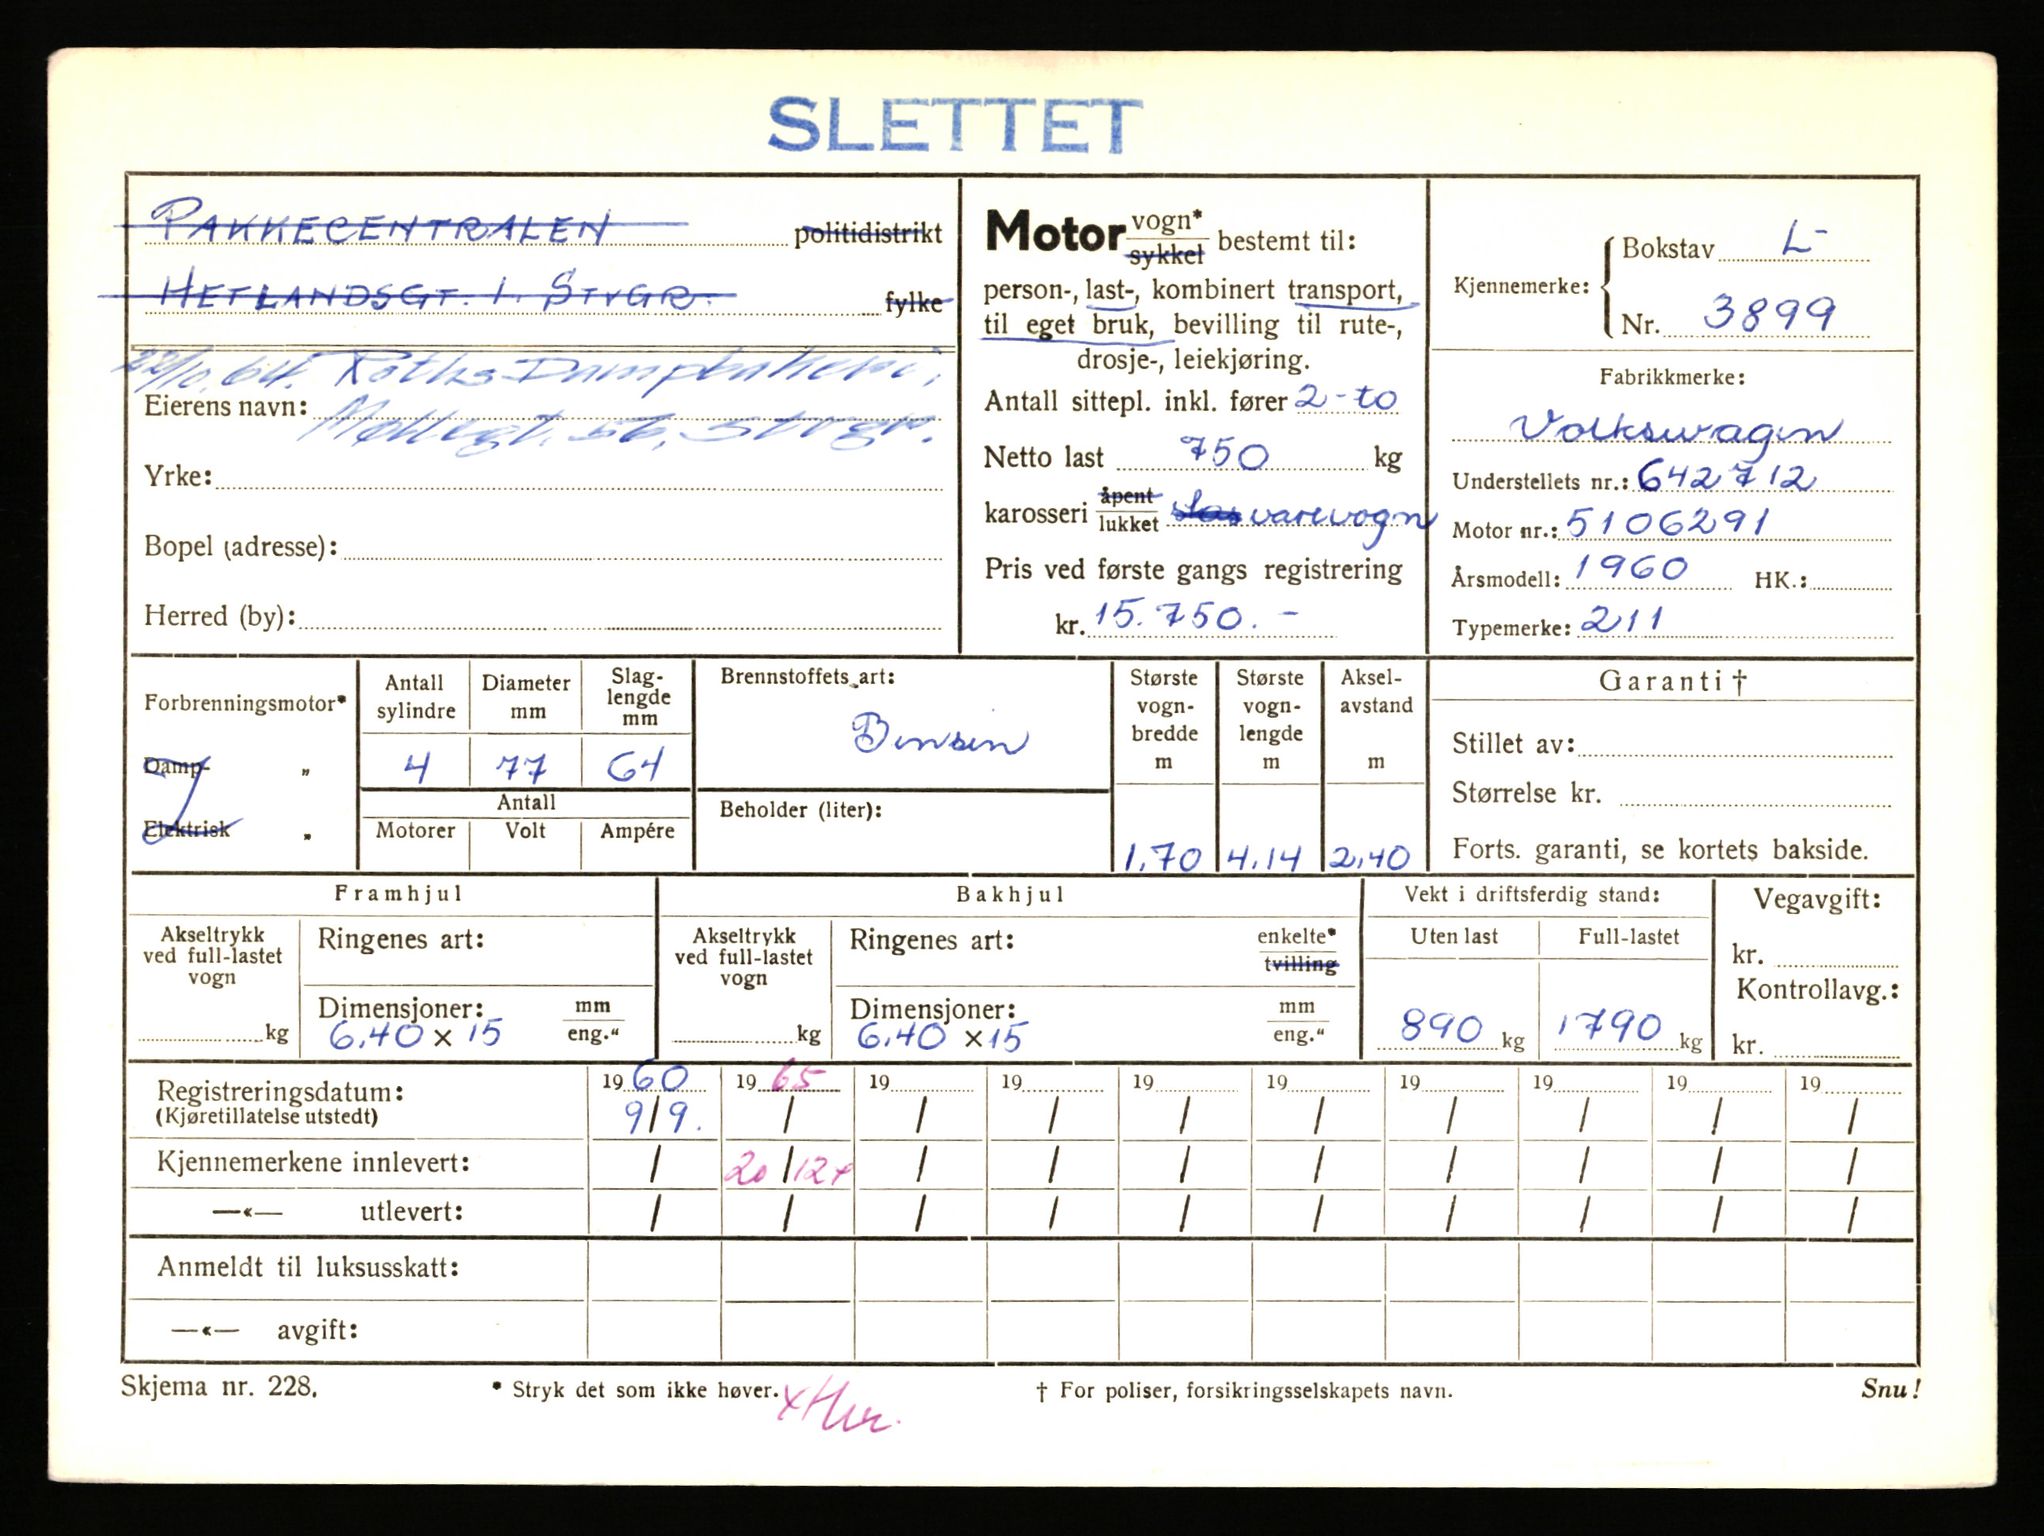 SLETTET
PAKKECENTRALEN politidistrikt
HETLANDSGT. 1. STVGR. fylke
22/10.64. Roths Dampbakeri,
Eierens navn: Møllegt. 56, Stvgr.
Yrke:
Bopel (adresse):
Herred (by):
Motor vogn*
sykkel bestemt til:
person-, last-, kombinert transport,
til eget bruk, bevilling til rute-,
drosje-, leiekjøring.
Antall sittepl. inkl. fører 2-to
Netto last 750 kg
karosseri åpent
lukket varevogn
Pris ved første gangs registrering
kr. 15.750.-
Kjennemerke: Bokstav L-
Nr. 3899
Fabrikkmerke:
Volkswagen
Understellets nr.: 642712
Motor nr.: 5106291
Årsmodell: 1960 HK.:
Typemerke: 211
Forbrenningsmotor*
Damp- "
Elektrisk "
Antall sylindre
4
Diameter mm
77
Slag-
lengde
mm
64
Antall
Motorer Volt Ampére
Brennstoffets art:
Bensin
Beholder (liter):
Største
vogn-
bredde
m
1.70
Største
vogn-
lengde
m
4.14
Aksel-
avstand
m
2.40
Garanti †
Stillet av:
Størrelse kr.
Forts. garanti, se kortets bakside.
Framhjul
Akseltrykk
ved full-lastet
vogn
kg
Ringenes art:
Dimensjoner: mm
6.40 x 15 eng."
Bakhjul
Akseltrykk
ved full-lastet
vogn
kg
Ringenes art: enkelte*
tvilling
Dimensjoner: mm
6.40 x 15 eng."
Vekt i driftsferdig stand:
Uten last Full-lastet
890 kg 1790 kg
Vegavgift:
kr.
Kontrollavg.:
kr.
Registreringsdatum: 1960 1965 19 19 19 19 19 19 19 19
(Kjøretillatelse utstedt) 9/9. / / / / / / / / /
Kjennemerkene innlevert: / 20/12x / / / / / / / /
—«— utlevert: / / / / / / / / / /
Anmeldt til luksusskatt:
—«— avgift:
Skjema nr. 228. * Stryk det som ikke høver. † For poliser, forsikringsselskapets navn. Snu!